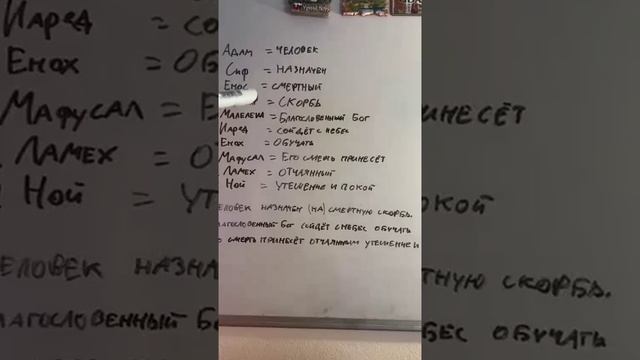 Адам = человек
Сиф = назначен
Енос = смертный
= скорбь
Малелеил = Благословенный Бог
Иаред = сойдёт с небес
Енох = обучать
Мафусал = Его смерть принесёт
Ламех = отчаянный
Ной = утешение и покой
человек назначен (на) смертную скорбь.
благословенный Бог сойдёт с небес обучать
смерть принесёт отчаянным утешение и